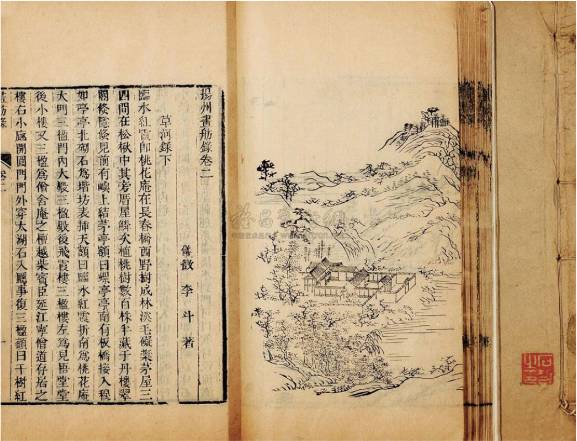 揚州畫舫錄卷二
草河錄下
儀徵 李斗 著
臨水紅霞即桃花庵在長春橋西野樹成林溪毛礙槳茅屋三
四間在松楸中其旁厝屋鱗次植桃樹數百株半藏于丹樓翠
閣倏隱倏見前有嶼上結茅亭額曰螺亭亭南有板橋接入穆
如亭亭北砌石為階坊表插天額曰臨水紅霞折南為桃花庵
大門三楹門內大殿三楹殿後飛霞樓三楹樓左為見悟堂堂
後小樓又三楹為僧舍庵之檀越柴賓臣延江寧僧道存居之
樓右小廊開圓門門外穿太湖石入廳事復三楹額曰千樹紅